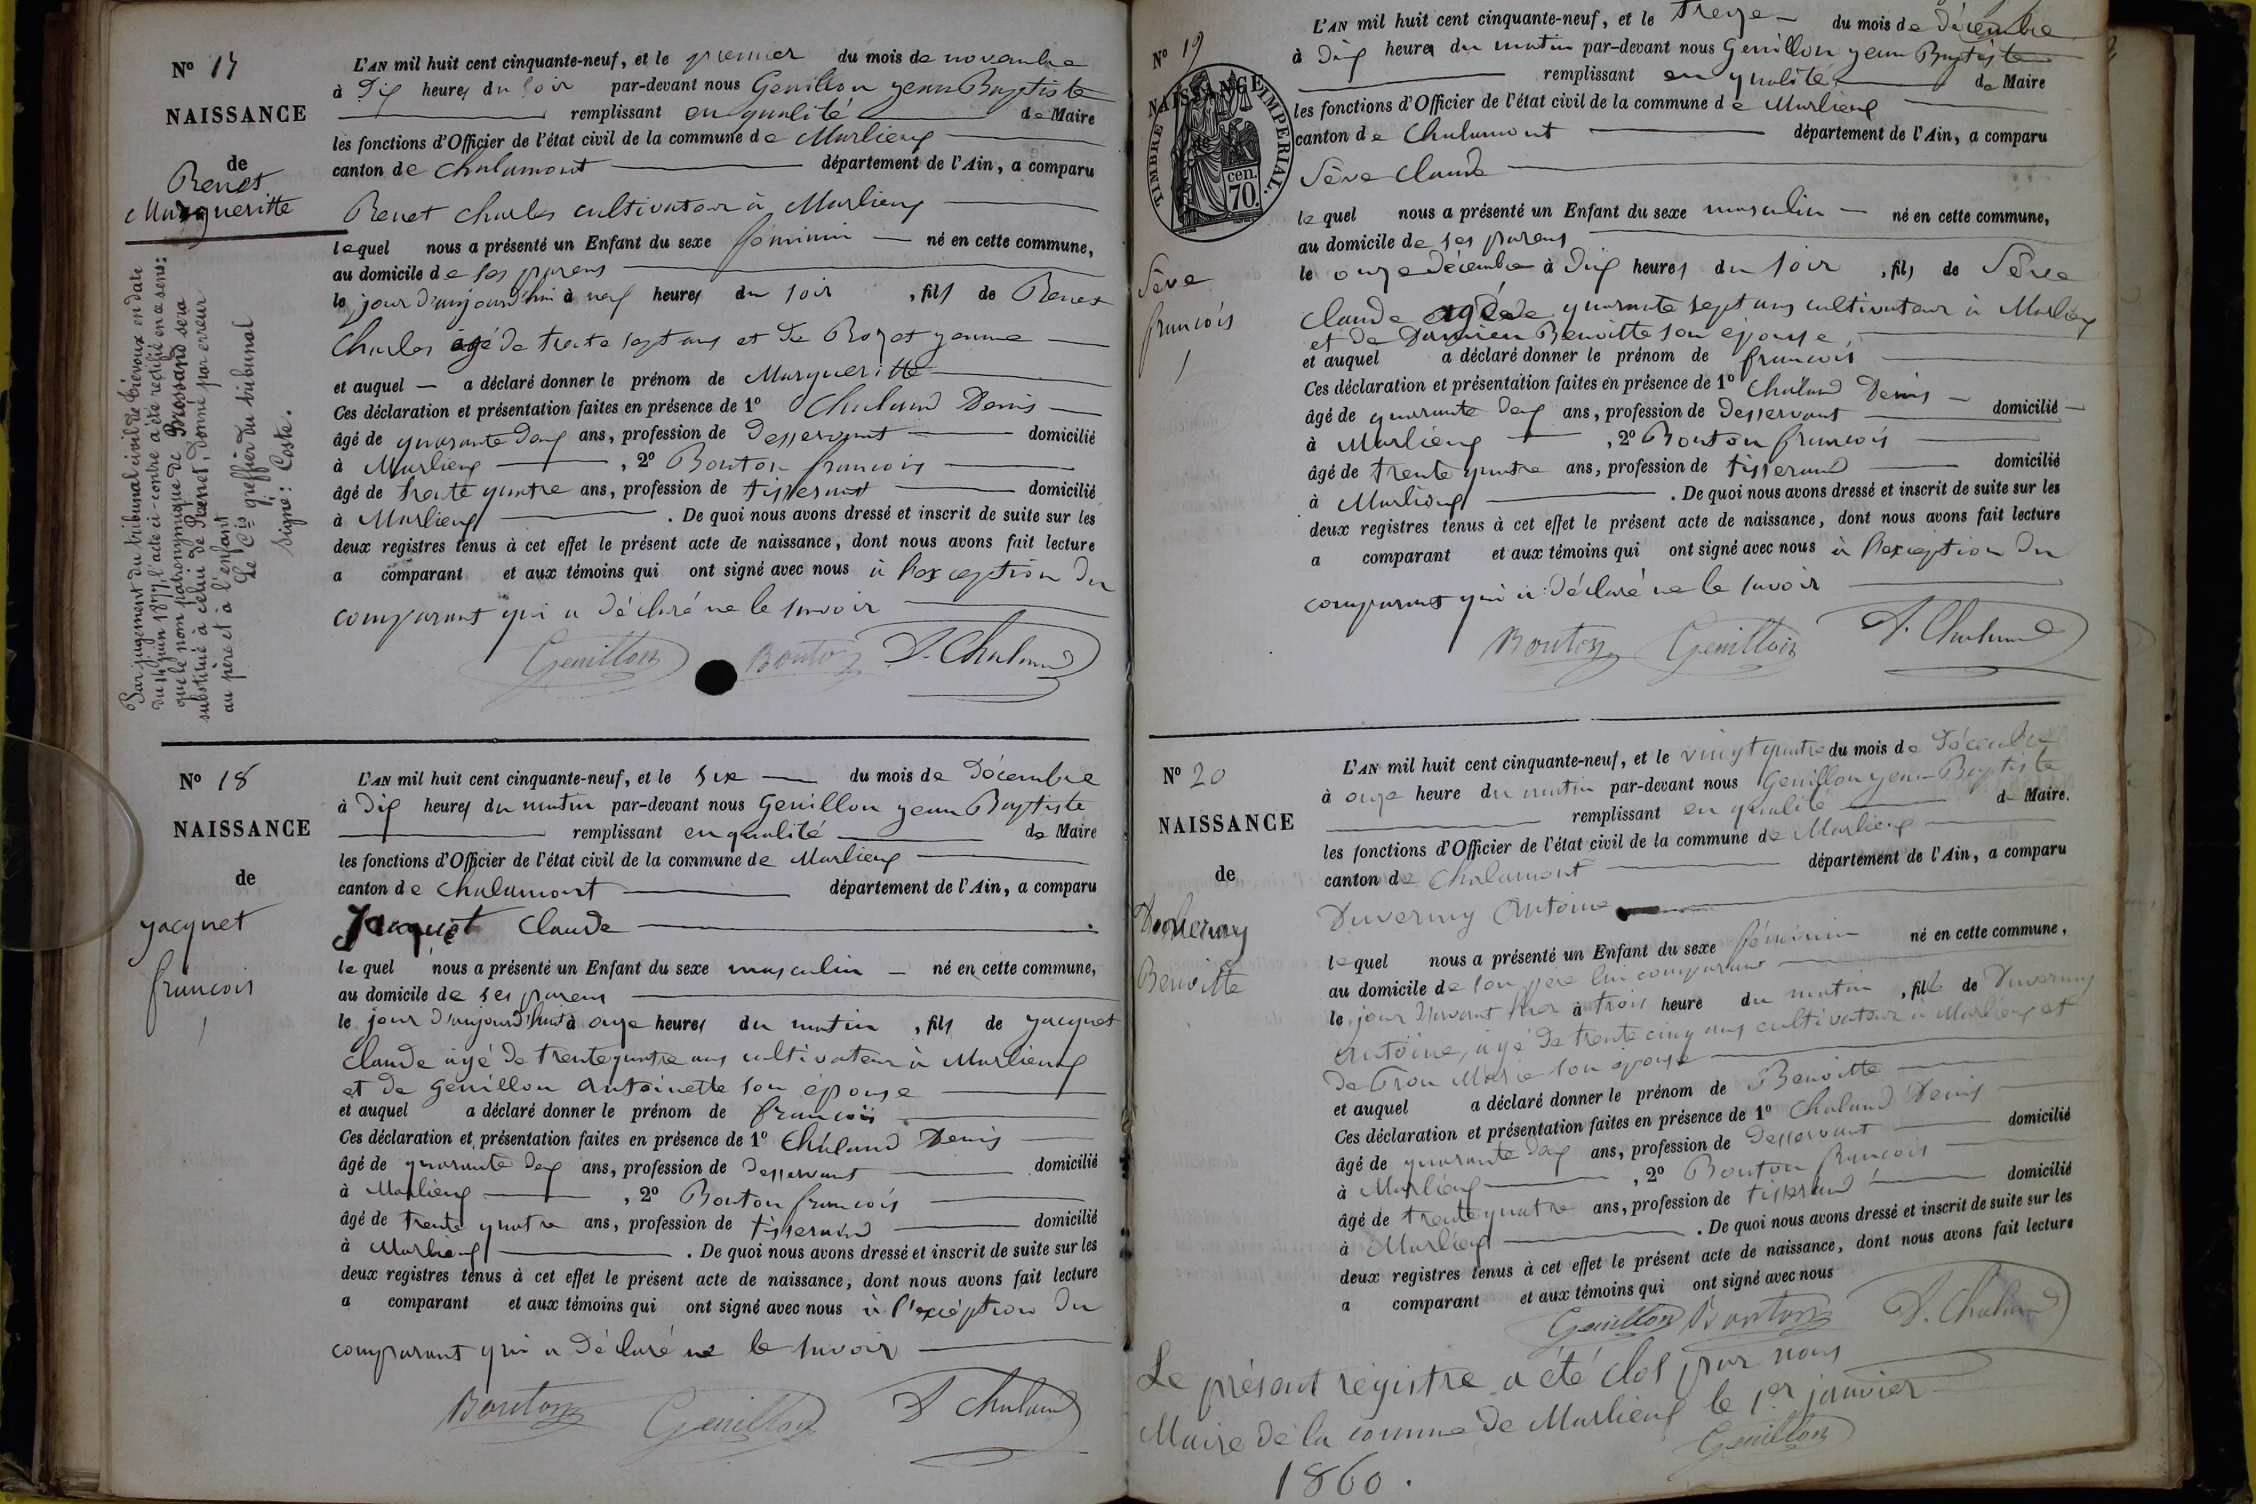 N° 17
NAISSANCE
de
Renet
Margueritte
Par jugement du tribunal civil de Trévoux en date
du 14 juin 1877, l'acte ci-contre a été rectifié en ce sens:
que le nom patronymique de Brossand sera
substitué à celui de Renet, donné par erreur
au père et à l'enfant
Le Cis greffier du tribunal
Signé: Coste.
L'AN mil huit cent cinquante-neuf, et le premier du mois de novembre
à Dix heures du soir par-devant nous Genillon jean Baptiste
remplissant en qualité de Maire
les fonctions d'Officier de l'état civil de la commune de Marlieux
canton de Chalamont département de l'Ain, a comparu
Renet charles cultivateur à Marlieux
lequel nous a présenté un Enfant du sexe féminin né en cette commune,
au domicile de ses parens
le jour d'aujourd'hui à neuf heures du soir, fils de Renet
Charles agé de trente sept ans et de Rozet jeanne
et auquel a déclaré donner le prénom de Margueritte
Ces déclaration et présentation faites en présence de 1° Chaland Denis
âgé de quarante deux ans, profession de Desservant domicilié
à Marlieux, 2° Bouton francois
âgé de trente quatre ans, profession de tisserand domicilié
à Marlieux. De quoi nous avons dressé et inscrit de suite sur les
deux registres tenus à cet effet le présent acte de naissance, dont nous avons fait lecture
a comparant et aux témoins qui ont signé avec nous à l'exception du
comparant qui a déclaré ne le savoir
Genillon Bouton D. Chaland
N° 18
NAISSANCE
de
jacquet
francois
L'AN mil huit cent cinquante-neuf, et le six du mois de Décembre
à Dix heures du matin par-devant nous Genillon jean Baptiste
remplissant en qualité de Maire
les fonctions d'Officier de l'état civil de la commune de Marlieux
canton de chalamont département de l'Ain, a comparu
Jacquet Claude
lequel nous a présenté un Enfant du sexe masculin né en cette commune,
au domicile de ses parens
le jour d'aujourd'hui à onze heures du matin, fils de jacquet
Claude agé de trente quatre ans cultivateur à Marlieux
et de genillon antoinette son épouse
et auquel a déclaré donner le prénom de francois
Ces déclaration et présentation faites en présence de 1° Chaland Denis
âgé de quarante deux ans, profession de desservant domicilié
à Marlieux, 2° Bouton francois
âgé de trente quatre ans, profession de tisserand domicilié
à Marlieux. De quoi nous avons dressé et inscrit de suite sur les
deux registres tenus à cet effet le présent acte de naissance, dont nous avons fait lecture
a comparant et aux témoins qui ont signé avec nous à l'exception du
comparant qui a déclaré ne le savoir
Bouton Genillon D Chaland
N° 19
NAISSANCE
TIMBRE IMPERIAL.
70. cen.
Sève
francois
L'AN mil huit cent cinquante-neuf, et le treize du mois de décembre
à Dix heures du matin par-devant nous Genillon jean Baptiste
remplissant en qualité de Maire
les fonctions d'Officier de l'état civil de la commune de Marlieux
canton de Chalamont département de l'Ain, a comparu
Sève Claude
lequel nous a présenté un Enfant du sexe masculin né en cette commune,
au domicile de ses parens
le onze décembre à Dix heures du soir, fils de Sève
Claude agé de quarante sept ans cultivateur à Marlieux
et de Damien Benoitte son épouse
et auquel a déclaré donner le prénom de francois
Ces déclaration et présentation faites en présence de 1° Chaland Denis
âgé de quarante deux ans, profession de Desservant domicilié
à Marlieux, 2° Bouton francois
âgé de trente quatre ans, profession de tisserand domicilié
à Marlieux. De quoi nous avons dressé et inscrit de suite sur les
deux registres tenus à cet effet le présent acte de naissance, dont nous avons fait lecture
a comparant et aux témoins qui ont signé avec nous à l'exception du
comparant qui a déclaré ne le savoir
Bouton Genillon D. Chaland
N° 20
NAISSANCE
de
Duvernay
Benoitte
L'AN mil huit cent cinquante-neuf, et le vingt quatre du mois de Décembre
à onze heure du matin par-devant nous Genillon jean Baptiste
remplissant en qualité de Maire.
les fonctions d'Officier de l'état civil de la commune de Marlieux
canton de Chalamont département de l'Ain, a comparu
Duvernay Antoine
lequel nous a présenté un Enfant du sexe féminin né en cette commune,
au domicile de son père lui comparant
le jour Devant hier à trois heure du matin, fille de Duvernay
antoine, agé de trente cinq ans cultivateur à Marlieux et
de Tron Marie son épouse
et auquel a déclaré donner le prénom de Benoitte
Ces déclaration et présentation faites en présence de 1° Chaland Denis
âgé de quarante deux ans, profession de Desservant domicilié
à Marlieux, 2° Bouton francois
âgé de trente quatre ans, profession de tisserand domicilié
à Marlieux. De quoi nous avons dressé et inscrit de suite sur les
deux registres tenus à cet effet le présent acte de naissance, dont nous avons fait lecture
a comparant et aux témoins qui ont signé avec nous
Genillon Bouton D. Chaland
Le présent régistre a été clos par nous
Maire de la commune de Marlieux le 1er janvier
1860.
Genillon